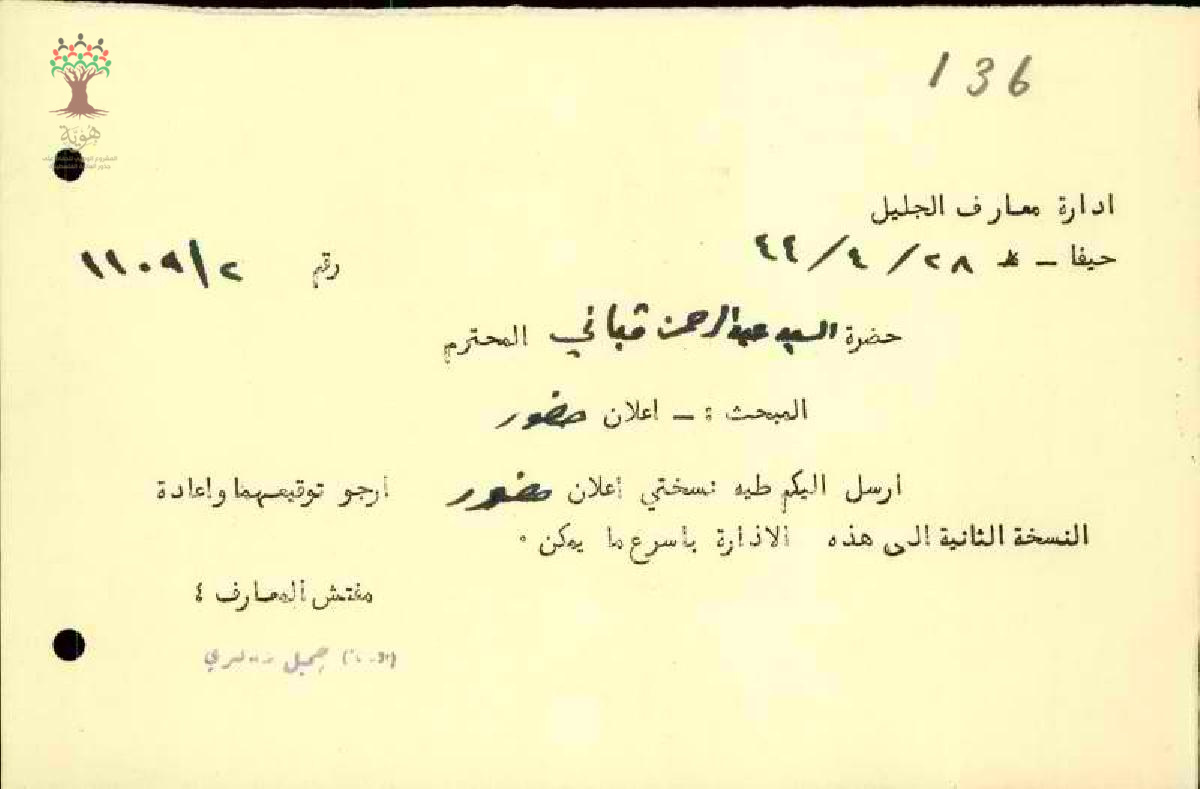 136
هوية
ادارة معارف الجليل
حيفا – * ٢٨ / ٤ / ٤٤
رقم ١١٠٩/٢
حضرة السيد عبدالرحمن قباني المحترم
المبحث : – اعلان حضور
ارسل اليكم طيه نسختي اعلان حضور ارجو توقيعهما واعادة
النسخة الثانية الى هذه الادارة باسرع ما يمكن ٠
مفتش المعارف ٤
جميل